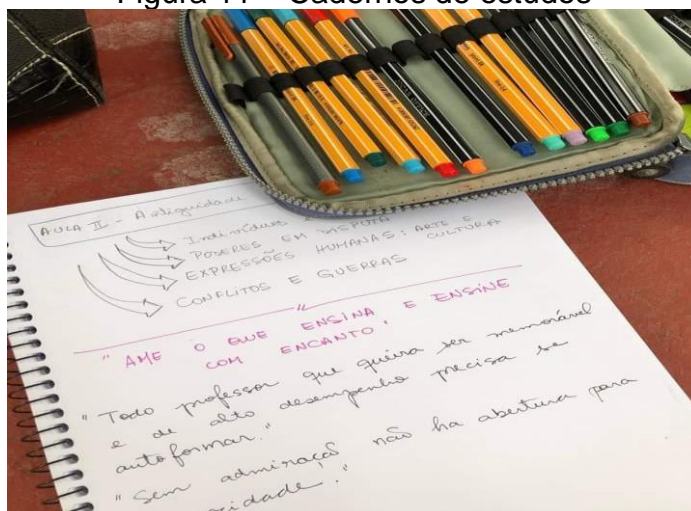 Figura 44 – Cadernos de estudos
AULA II - Antiguidade
Indivíduos
PODERES EM DISPUTA
EXPRESSÕES HUMANAS: ARTE E
CULTURA
CONFLITOS E GUERRAS
"AME O QUE ENSINA, E ENSINE
COM ENCANTO"
"Todo professor que queira ser memorável
e de alto desempenho precisa se
autoformar."
"Sem admiração não ha abertura para